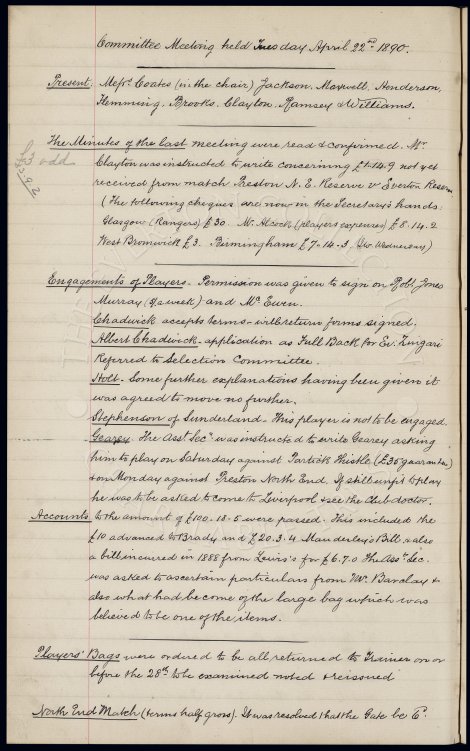 Committee Meeting held Tuesday April 22nd 1890.
Present: Messrs Coates (in the chair) Jackson, Maxwell, Henderson,
Flemming, Brooks, Clayton, Ramsey & Williams.
The Minutes of the last meeting were read & confirmed. Mr
Clayton was instructed to write concerning £1-14-9 not yet
received from match Preston N. E. Reserve v Everton Reserve
(The following cheques are now in the Secretary's hands:
Glasgow (Rangers) £30. Mr Alcock (players expenses) £8-14-2
West Bromwick £3. Birmingham £7-14-3 (Wednesday)
£3 odd
£3.9.2
Engagements of Players. Permission was given to sign on Robt Jones
Murray (a week) and Mc Ewen.
Chadwick accepts terms - will return forms signed.
Albert Chadwick - application as Full Back for Ev. Zingari
Referred to Selection Committee.
Holt. Some further explanations having been given it
was agreed to move no further.
Stephenson of Sunderland. This player is not to be engaged.
Gearey. The Asst Secy was instructed to write Gearey asking
him to play on Saturday against Partick Thistle (£35 guarantee)
& on Monday against Preston North End. If still unfit to play
he was to be asked to come to Liverpool & see the Club doctor.
Accounts to the amount of £100.18-5 were passed. This included the
£10 advanced to Brady and £20.3.4 Manderley's Bill & also
a bill incurred in 1888 from Lewis's for £6.7.0 The Asst Sec.
was asked to ascertain particulars from Mr. Barclay &
also what had become of the large bag which was
believed to be one of the items.
Players' Bags were ordered to be all returned to Trainer on or
before the 28th to be examined noted & reissued
North End Match (terms half gross). It was resolved that the Gate be 6d.